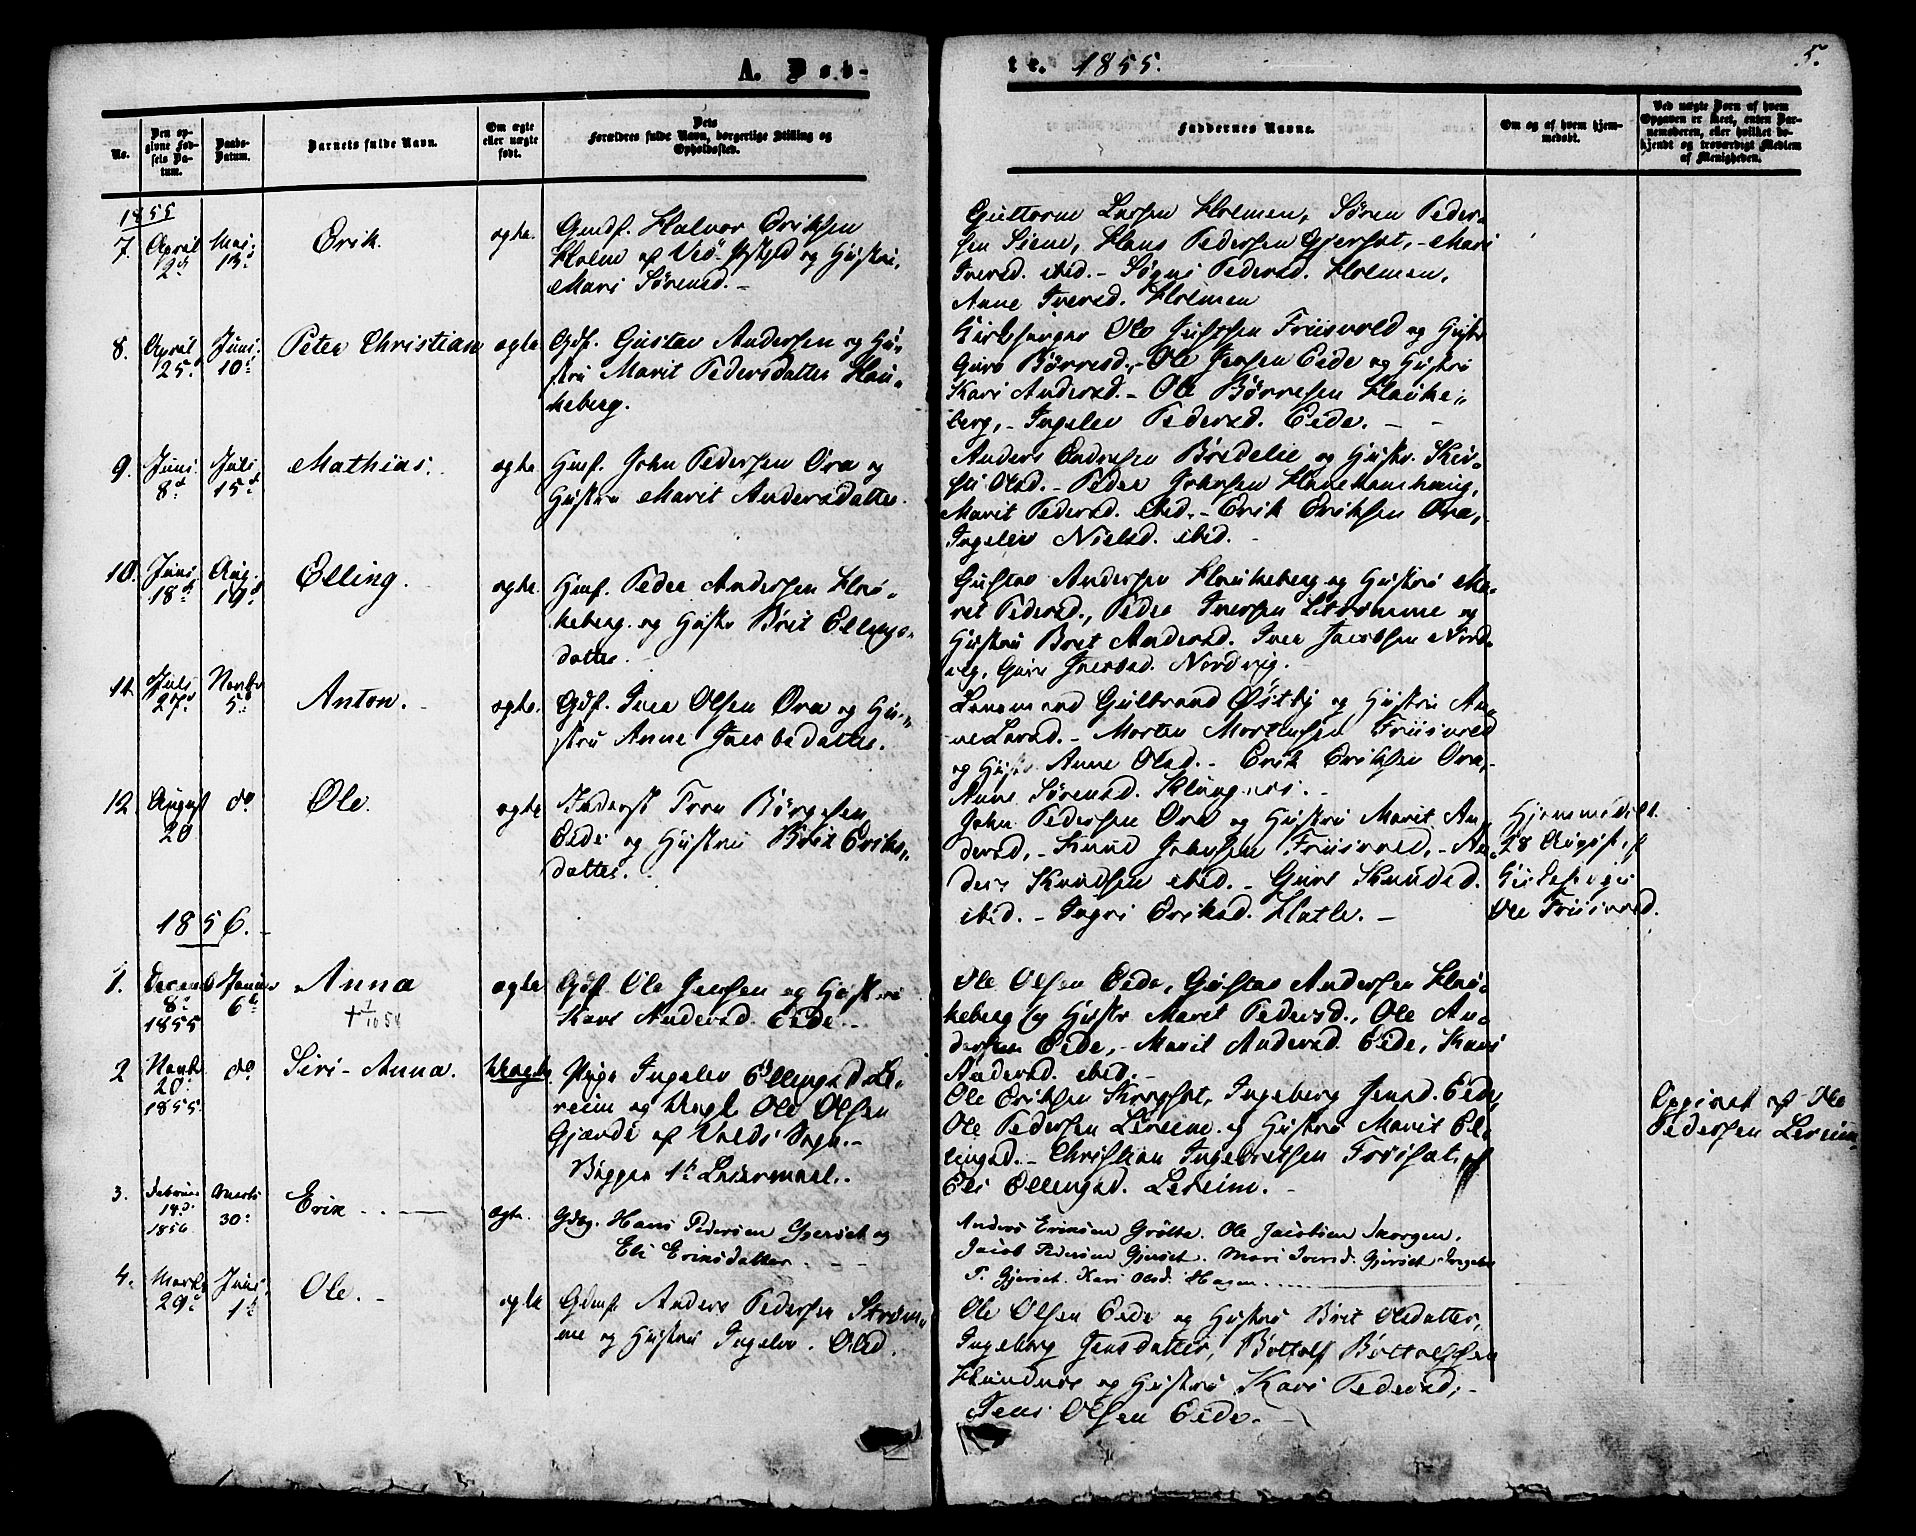 A. Døb-
te. 1855.
5.
No.
Den op-
givne Fød-
sels Da-
tum.
Daabs-
Datum.
Barnets fulde Navn.
Om ægte
eller uægte
født.
Dets
Forældres fulde Navn, borgerlige Stilling og
Opholdssted.
Faddernes Navne.
Om og af hvem hjem-
medøbt.
Ved uægte Børn af hvem
Opgaven er skeet, enten Bar-
nemoderen, eller hvilket be-
kjendt og troværdigt Medlem
af Menigheden.
1855
7. April 2d Mai 13d Erik. ægte. Gmdf. Halvor Eriksen
Holme af Veø Præstgjeld og Hustru,
Mari Sørensd. -
Guttorm Larsen Holmen, Søren Peder-
sen Siene, Hans Pedersen Gjersæt, - Mari
Iversd. ibid. - Søgni Pedersd. Holmen,
Anne Iversd. Holmen
8. April 25d Juni 10d Peter Christian ægte Gdf. Gustav Andersen og Hu-
stru Marit Pedersdatter Hau-
keberg.
Kirkesanger Ole Friisvold og Hustr
Guro Børresd. - Ole Jensen Eide og Hustru
Kari Andersd. - Ole Børresen Hauke-
berg, - Ingelev Pedersd. Eide. -
9. Juni 8d Juli 15d Mathias. ægte Hmf. John Pedersen Øra og
Hustru Marit Andersdatter.
Anders Endresen Bredelie og Hustr. Kir-
sti Olsd. - Peder Johnsen Hanekamhaug,
Marit Pedersd. ibid. - Erik Eriksen Øra,
Ingelev Nielsd. ibid.
10. Juni 18d Aug. 19d Elling. ægte. Hmf. Peder Andersen Hau-
keberg. og Hustr Brit Ellings-
datter.
Gustav Andersen Haukeberg og Hustru Ma-
rit Pedersd., Peder Iversen Strømme og
Hustru Brit Andersd. Iver Jacobsen Nord-
vig, Guri Jacobsd. Nordvig.
11. Juli 27d Novbr 5d Anton. - ægte. Gdf. Iver Olsen Øra og Hu-
stru Anne Jacobsdatter.
Lensmand Gulbrand Østby og Hustru An-
ne Larsd. - Morten Mortensen Friisvold
og Hustr Anne Olsd. - Erik Eriksen Øra,
Anne Sørensd. Klungnes. -
12 August 20 do Ole. ægte Inderst Tron Børgesen
Eide og Hustru Brit Eriks-
datter. -
John Pedersen Øra og Hustru Marit An-
dersd. - Knud Johnsen Friisvold, - An-
ders Knudsen ibid. - Guri Knudsd.
ibid. - Ingri Eriksd. Hatle. -
Hjemmedøbt.
28 August, af
Kirkesanger
Ole Friisvold.
1856. -
1. Decemb 8d 1855 Januar 6d Anna ægte Gdf. Ole Jensen og Hustru
Kari Andersd. Eide. -
Ole Olsen Eide, Gustav Andersen Hau-
keberg og Hustr Marit Pedersd., Ole An-
dersen Eide, - Marit Andersd. Eide, Kari
Andersd. ibid. -
2 Novbr 20d 1855. do Siri-Anna. Uægte Pige Ingelev Ellingsd. Le-
reim og Ungk. Ole Olsen
Gjærde af Volds Sogn. -
Begges 1st Leiermaal. -
Ole Eriksen Skorgset, Ingeborg Jensd. Eide,
Ole Pedersen Lereim og Hustru Marit El-
lingsd. - Christian Ingebretsen Frøiset, af
Eli Ellingsd. Lereim. -
Opgivet af Ole
Pedersen Lereim
3. Februar 14d 1856 Marts 30d Erik - - ægte. Gdbg. Hans Pedersen Gjersæt og
Eli Eriksdatter. - -
Anders Eriksen Grøtte. Ole Jacobsen Skorgen,
Jacob Pedersen Gjersæt. Mari Iversd. Gjersæt. Ingebor
P. Gjersæt. Kari Olsd. Hagen.
4. Marts 29d Juni 1st Ole. - ægte Gdmf. Anders Pedersen Strøm-
me og Hustru Ingelev Olsd.
Ole Olsen Eide og Hustru Brit Olsdatter,
Ingeborg Jensdatter, Bottolf Bottolfsen
Hundnes og Hustru Kari Pedersd,
Jens Olsen Eide. -